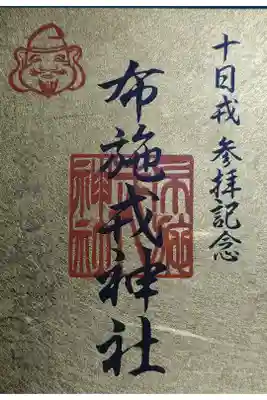 十日戎 参拝記念
布施戎神社